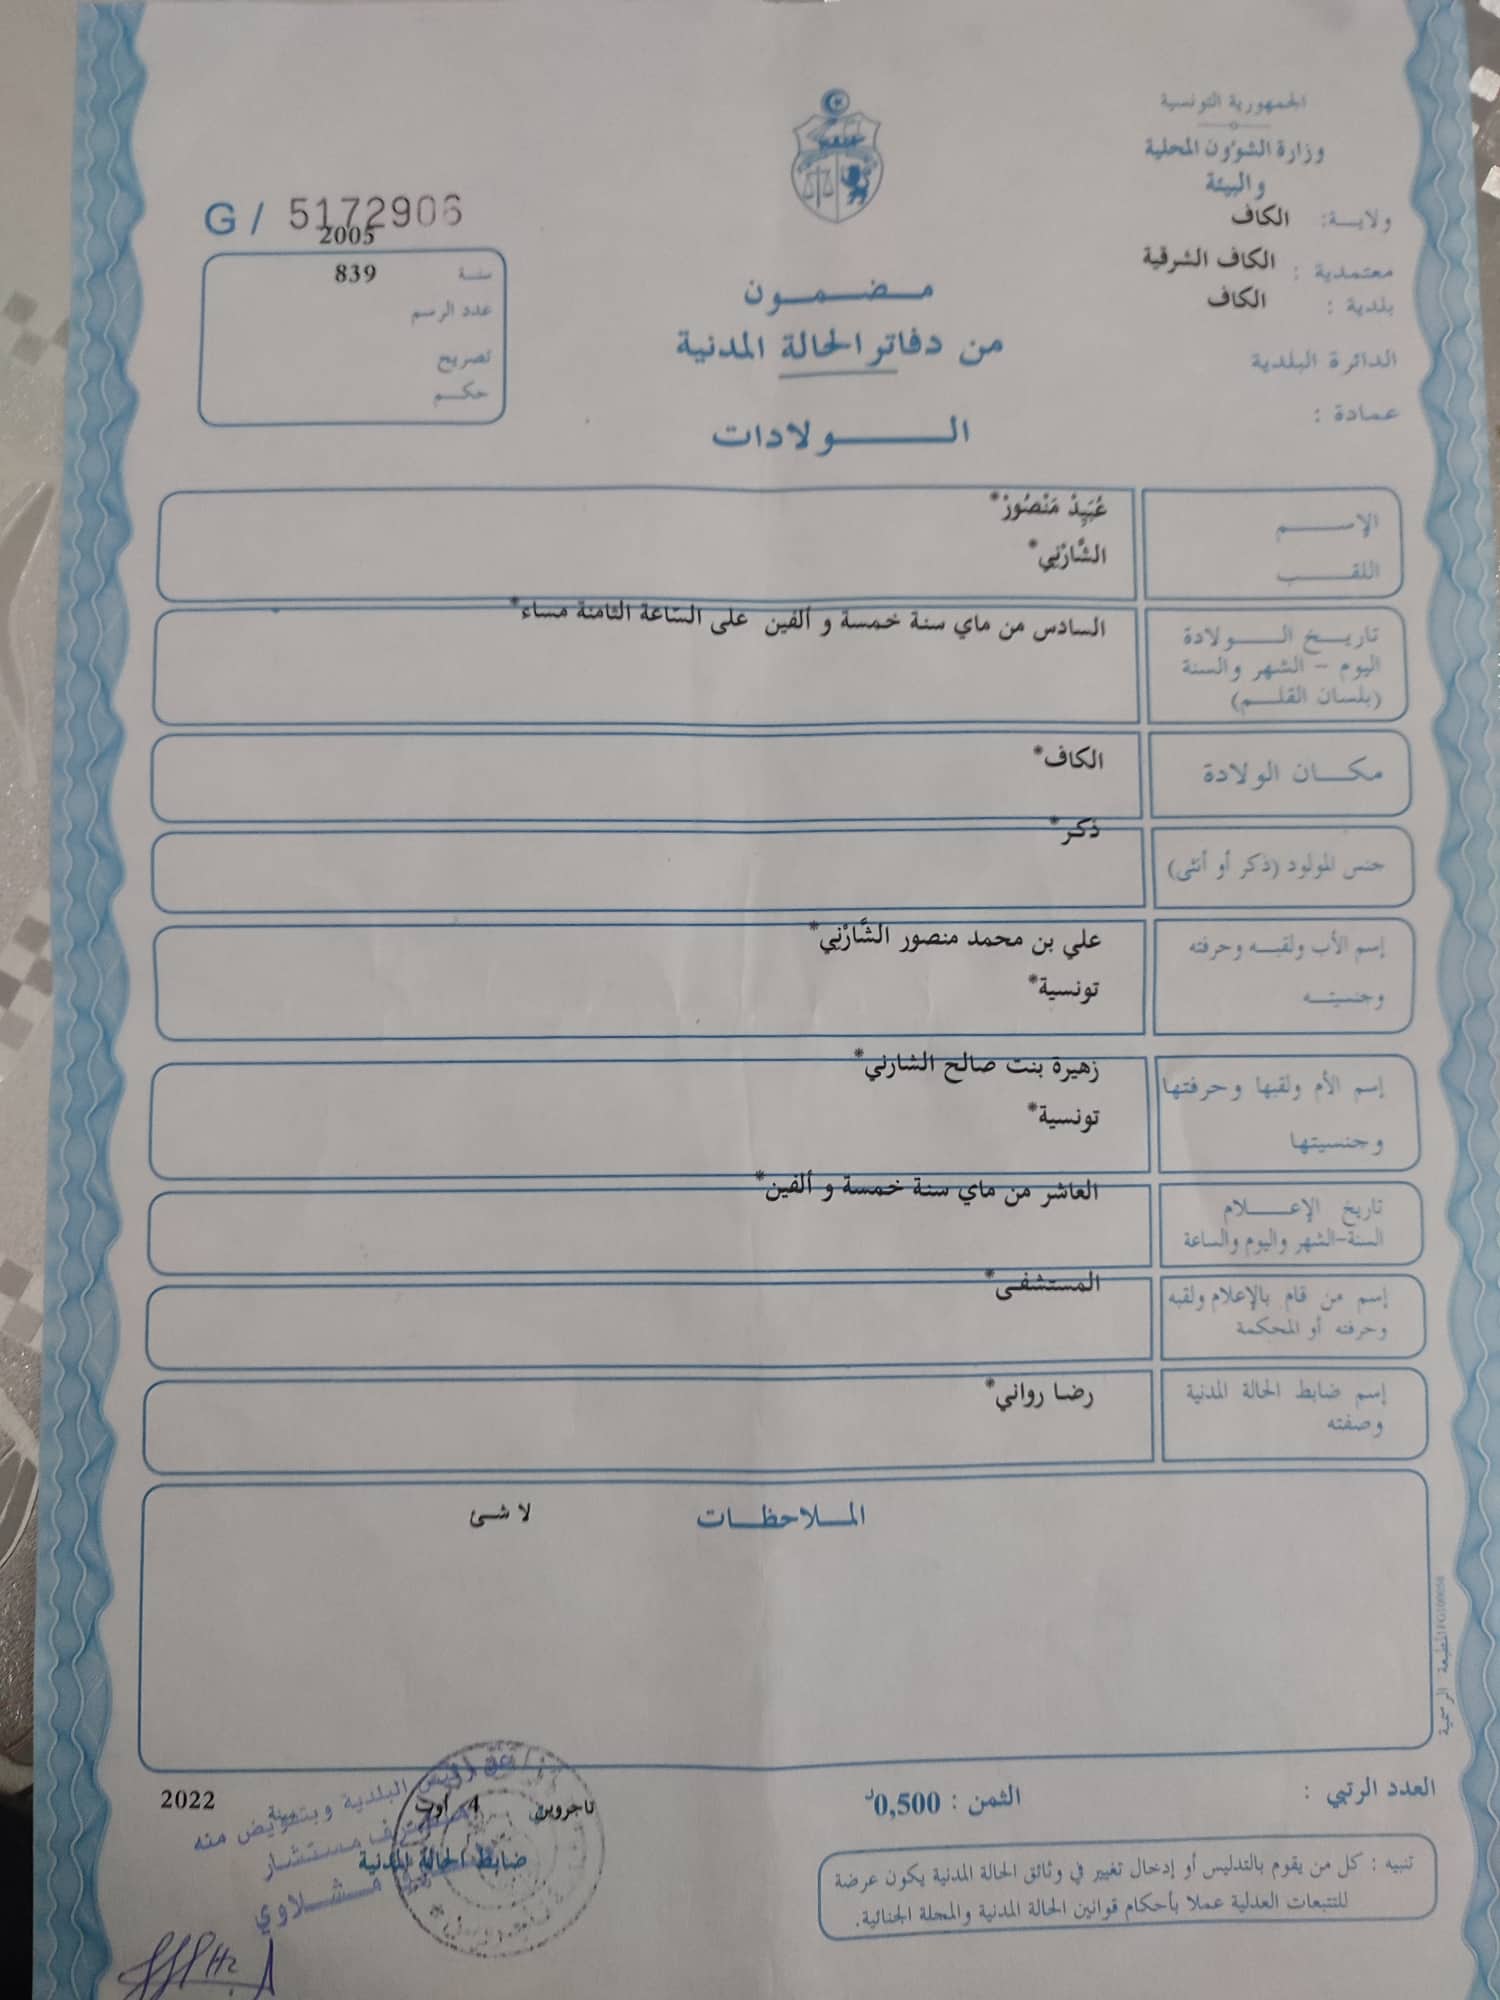 الجمهورية التونسية
وزارة الشؤون المحلية
والبيئة
ولايــة: الكاف
معتمدية : الكاف الشرقية
بلدية : الكاف
الدائرة البلدية
عمادة :
G / 5172906
2005
سنة 839
عدد الرسم
تصريح
حكــم
مــضــمــون
من دفاتر الحالة المدنية
الــــولادات
الإســــم عُبَيِدْ مَنْصُورْ*
اللقــــب الشَّارْنِي*
تاريــخ الــــولادة السادس من ماي سنة خمسة و ألفين على السّاعة الثامنة مساء*
اليوم - الشهر والسنة
(بلسان القلــم)
مكــان الولادة الكاف*
جنس المولود (ذكر أو أنثى) ذكر*
إسم الأب ولقبــه وحرفته علي بن محمد منصور الشَّارْنِي*
وجنسيتــه تونسية*
إسم الأم ولقبها وحرفتها زهيرة بنت صالح الشارني*
وجنسيتها تونسية*
تاريخ الإعــــلام العاشر من ماي سنة خمسة و ألفين*
السنة-الشهر واليوم والساعة
إسم من قام بالإعلام ولقبه المستشفى*
وحرفته أو المحكمة
إسم ضابط الحالة المدنية رضا رواني*
وصفته
المــلاحظــات لا شئ
المطبعة الرسمية
العدد الرتبي :
الثمن : 0,500د
تاجروين 4 أوت سنة 2022
ضابط الحالة المدنية
رئيس البلدية وبتفويض منه
مستشار
مــشــلاوي
تنبيه : كل من يقوم بالتدليس أو إدخال تغيير في وثائق الحالة المدنية يكون عرضة
للتتبعات العدلية عملا بأحكام قوانين الحالة المدنية والمجلة الجنائية.